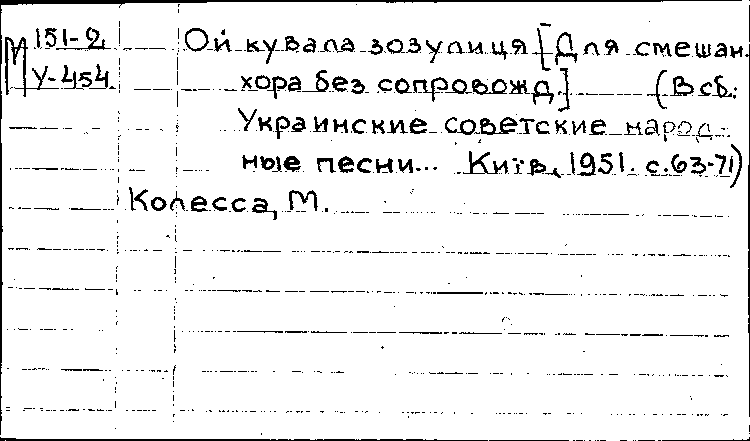 М 151-2 Ой кувала зозулиця [Для смешан.
У-454 хора без сопровожд.] (В сб.:
Украинские советские народ-
ные песни... Київ, 1951. с.63-71)
Колесса, М.